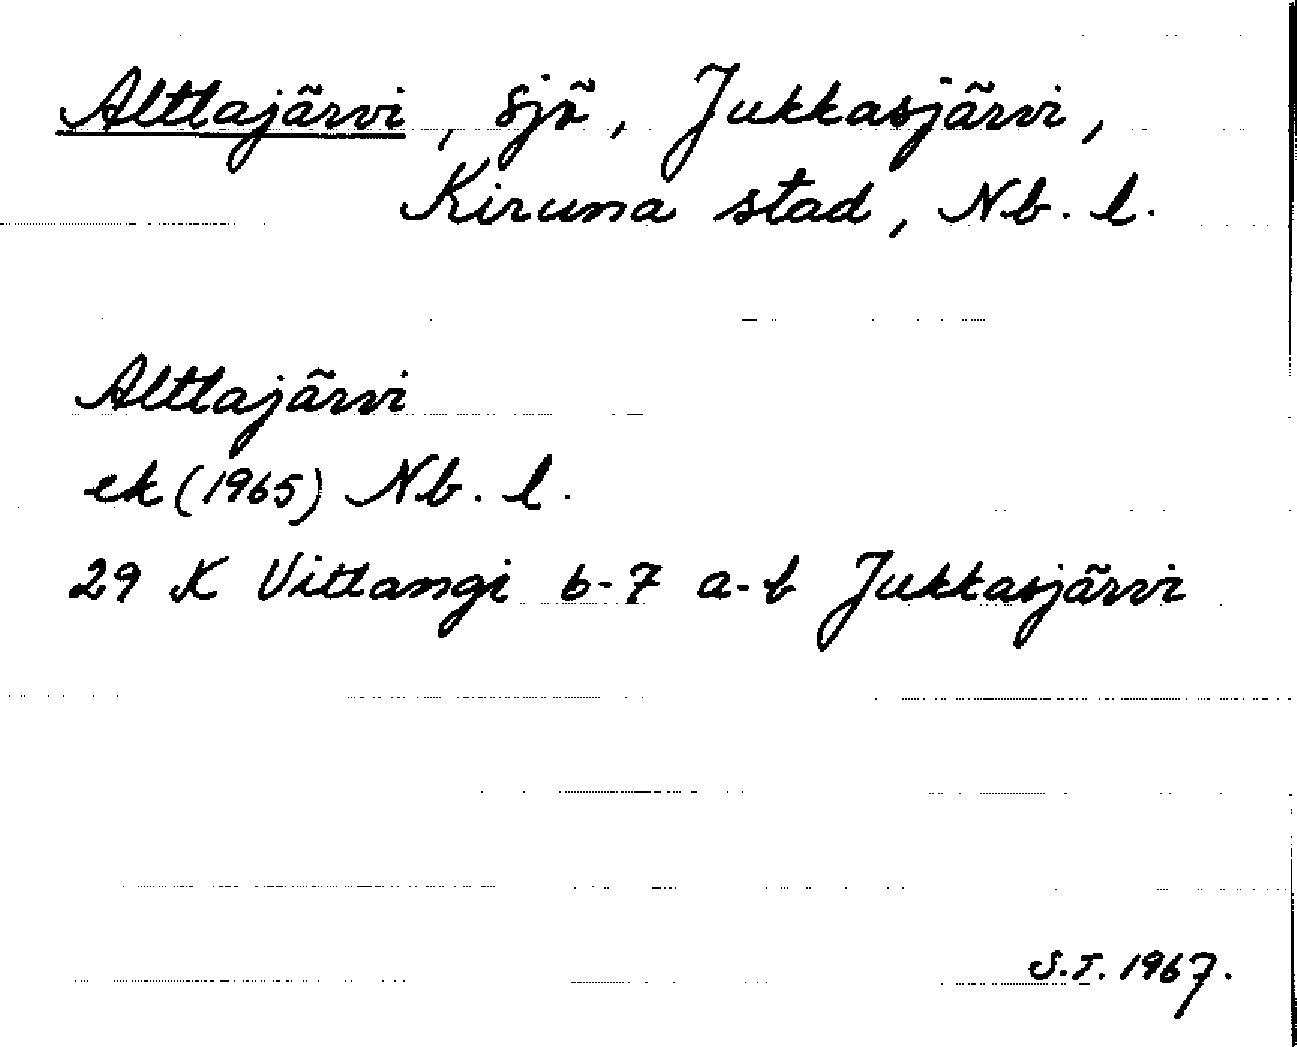 Alttajärvi, sjö, Jukkasjärvi,
Kiruna stad, Nb. l.
Alttajärvi
ek (1965) Nb. l.
29 K Vittangi 6-7 a-b Jukkasjärvi
S.T. 1967.